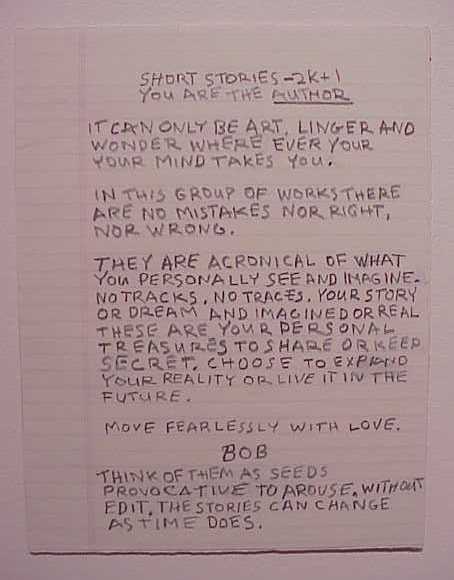 SHORT STORIES-2K+1
YOU ARE THE AUTHOR
IT CAN ONLY BE ART, LINGER AND
WONDER WHERE EVER YOUR
YOUR MIND TAKES YOU.
IN THIS GROUP OF WORKS THERE
ARE NO MISTAKES NOR RIGHT,
NOR WRONG.
THEY ARE ACRONICAL OF WHAT
YOU PERSONALLY SEE AND IMAGINE.
NO TRACKS, NO TRACES, YOUR STORY
OR DREAM AND IMAGINED OR REAL
THESE ARE YOUR PERSONAL
TREASURES TO SHARE OR KEEP
SECRET. CHOOSE TO EXPAND
YOUR REALITY OR LIVE IT IN THE
FUTURE.
MOVE FEARLESSLY WITH LOVE.
BOB
THINK OF THEM AS SEEDS
PROVOCATIVE TO AROUSE. WITHOUT
EDIT, THE STORIES CAN CHANGE
AS TIME DOES.